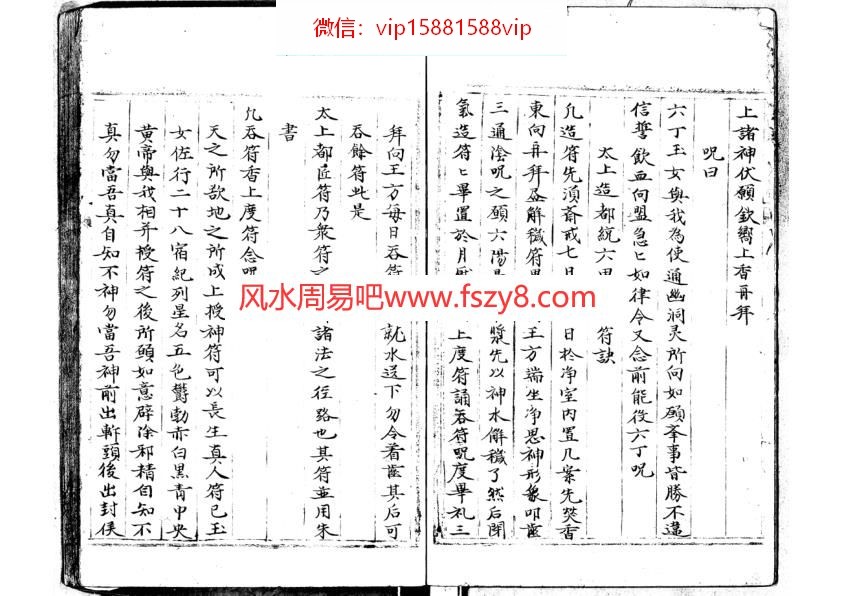 微信：vip15881588vip
上諸神伏願欽嚮上香再拜
呪曰
六丁玉女與我為使通幽洞灵所向如願峯事皆勝不違
信誓歃血向盟急匕如律令又念前能役六丁呪
太上造都統六甲符訣
凢造符先湏斎戒七日扵净室内置几案先焚香
東向再拜解穢符王方端坐净思神形象叩齒
三通陰呪之願六陽漿先以神水觧穢了然后閉
氣造符匕畢置於月上度符誦吞符呪度畢礼三
拜向王方每日吞符就水送下勿令着齒其后可
吞餘符此是
太上都匠符乃衆符之諸法之徑路也其符並用朱
書
凢吞符香上度符念呪
天之所欹地之所成上授神符可以長生真人符已玉
女佐行二十八宿紀列星名五色欝勃赤白黒青中央
黄帝與我相并授符之後所願如意辟除邪精自知不
真勿當吾真自知不神勿當吾神前出斬頭後出封侯
风水周易吧www.fszy8.com